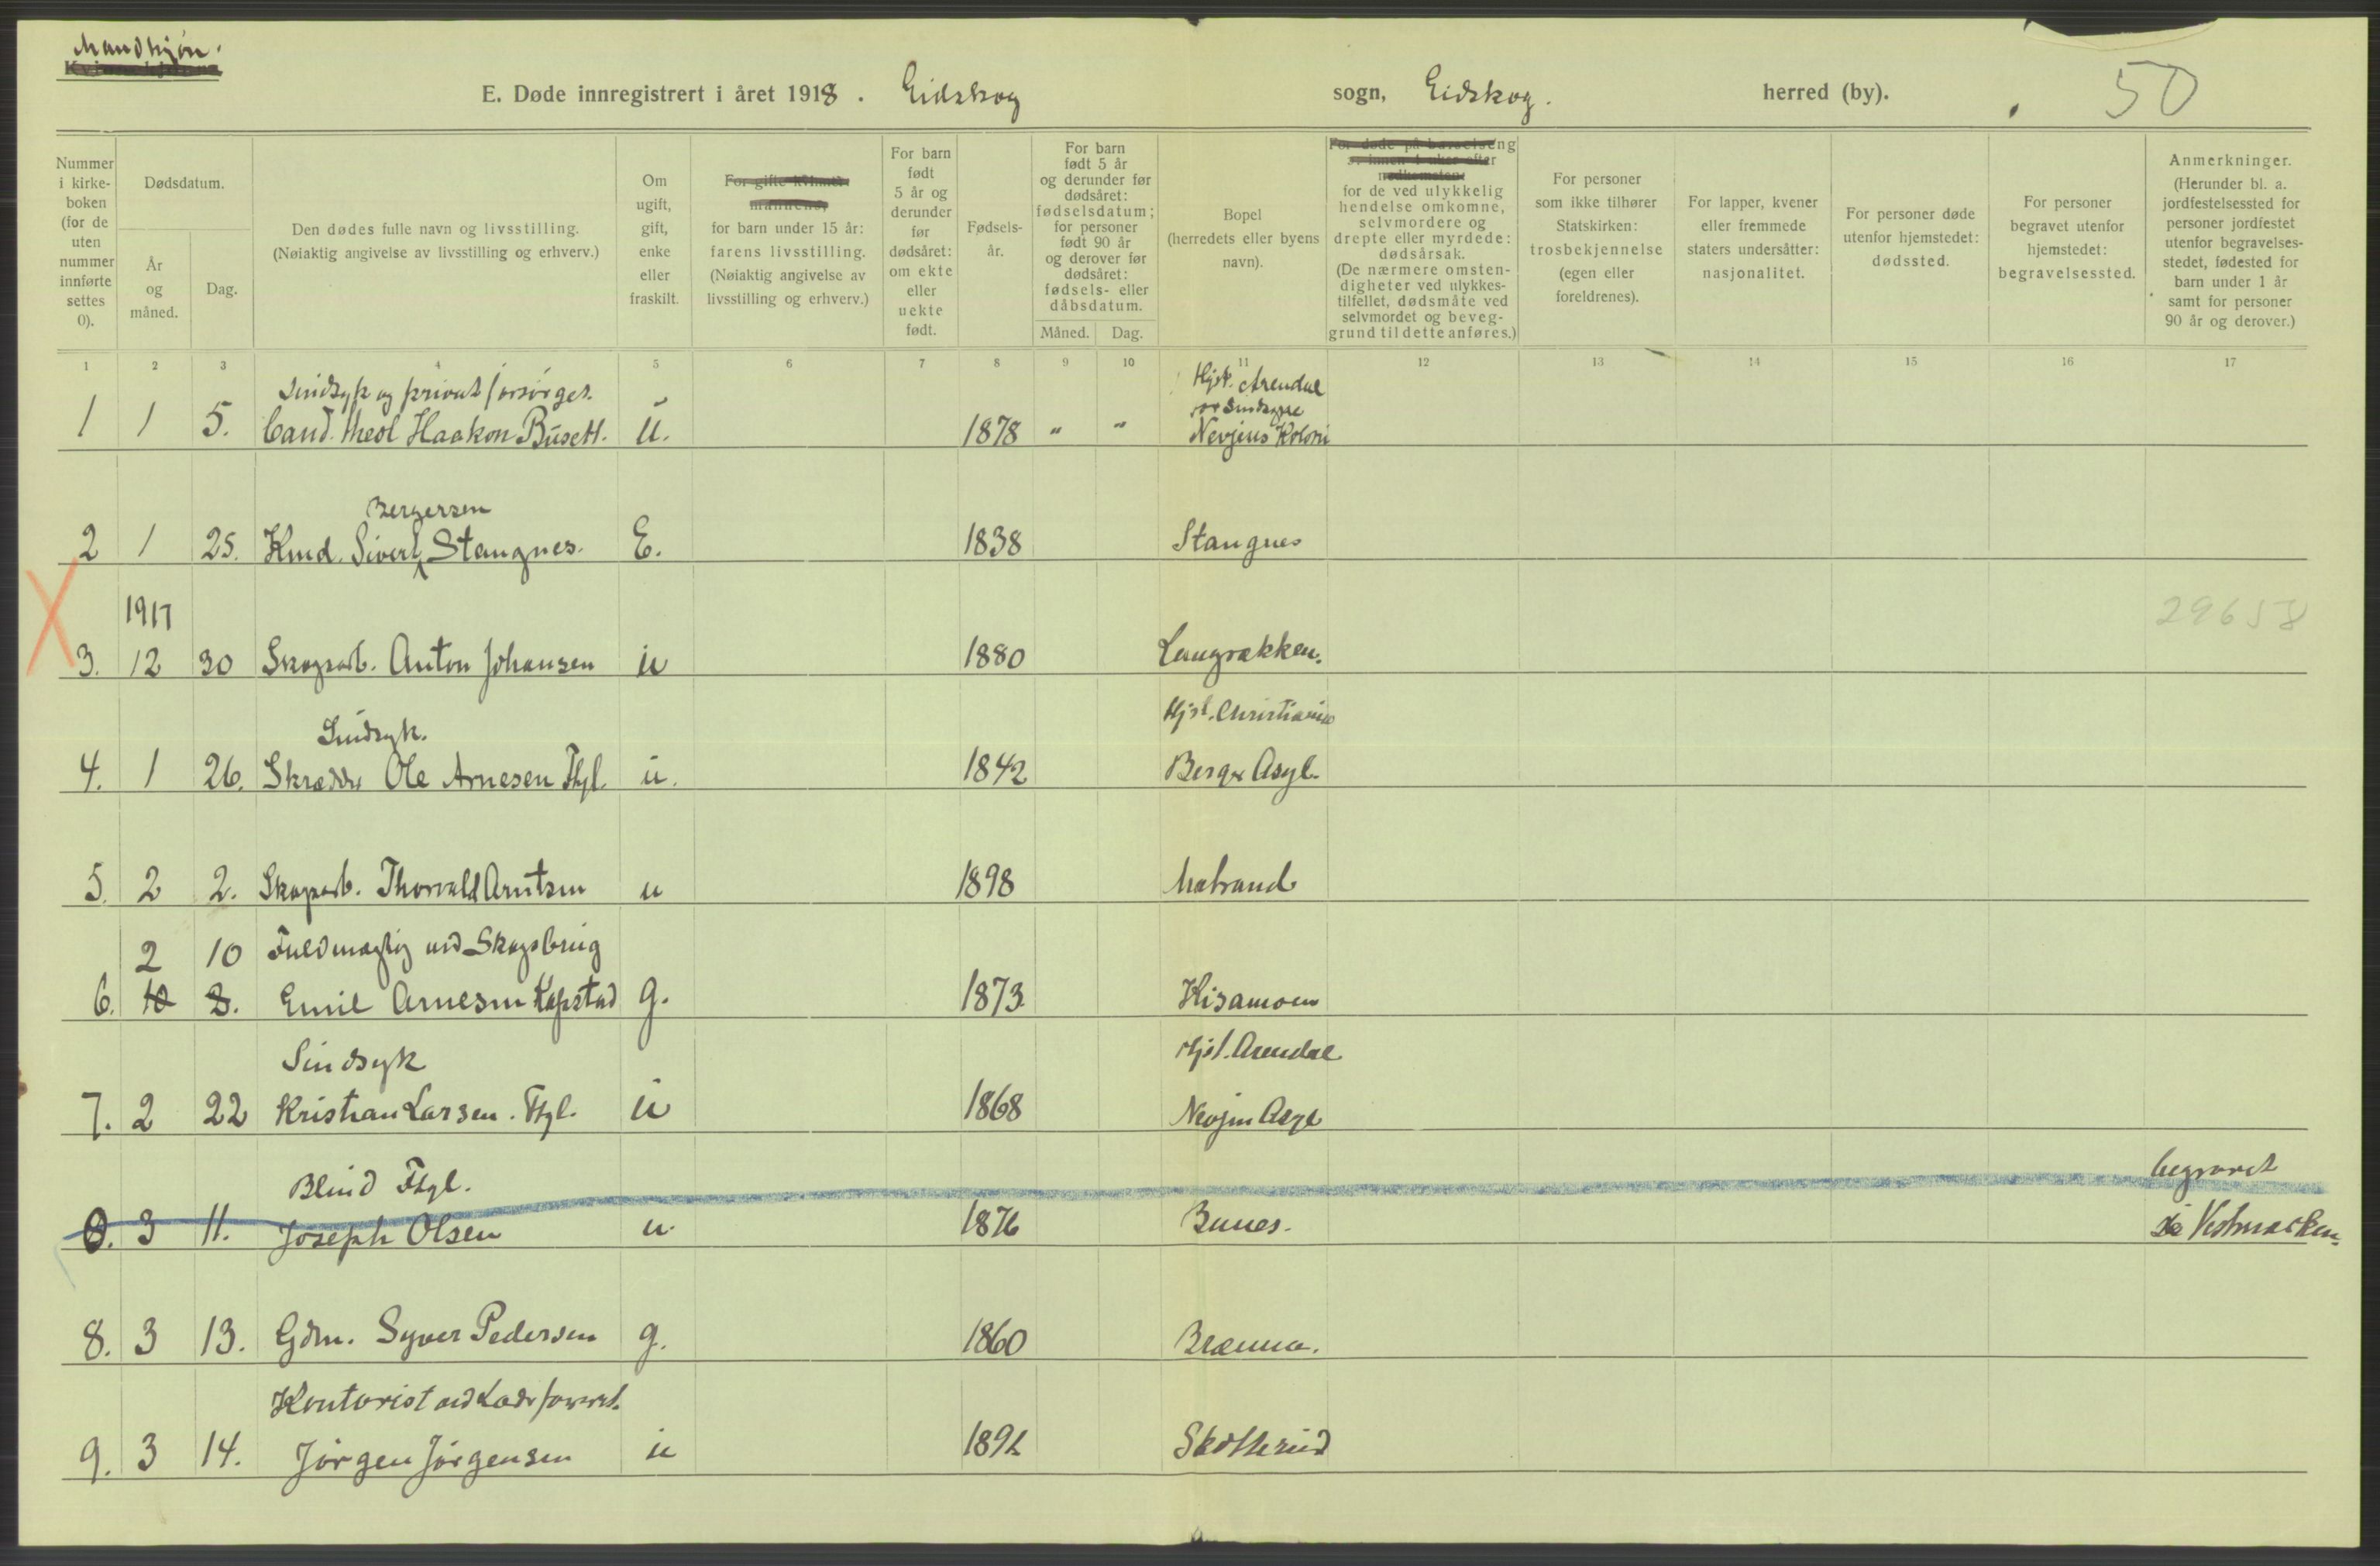 Mandkjøn.
E. Døde innregistrert i året 1918. Eidskog sogn, Eidskog. herred (by). 50
Nummer i kirke-boken (for de uten nummer innførte settes 0).
Dødsdatum.
År og måned.
Dag.
Den dødes fulle navn og livsstilling.
(Nøiaktig angivelse av livsstilling og erhverv.)
Om ugift, gift, enke eller fraskilt.
For gifte kvinner: mannens,
for barn under 15 år:
farens livsstilling.
(Nøiaktig angivelse av livsstilling og erhverv.)
For barn født 5 år og derunder før dødsåret: om ekte eller uekte født.
Fødsels-år.
For barn født 5 år og derunder før dødsåret: fødselsdatum; for personer født 90 år og derover før dødsåret: fødsels- eller dåbsdatum.
Måned. Dag.
Bopel
(herredets eller byens navn).
For døde på barselseng
for de ved ulykkelig hendelse omkomne, selvmordere og drepte eller myrdede: dødsårsak.
(De nærmere omsten-digheter ved ulykkes-tilfellet, dødsmåte ved selvmordet og beveg-grund til dette anføres.)
For personer som ikke tilhører Statskirken: trosbekjennelse (egen eller foreldrenes).
For lapper, kvener eller fremmede staters undersåtter: nasjonalitet.
For personer døde utenfor hjemstedet: dødssted.
For personer begravet utenfor hjemstedet: begravelsessted.
Anmerkninger.
(Herunder bl. a. jordfestelsessted for personer jordfestet utenfor begravelses-stedet, fødested for barn under 1 år samt for personer 90 år og derover.)
1 2 3 4 5 6 7 8 9 10 11 12 13 14 15 16 17
Sindsyk og privat forsørget. Hjst. Arendal
for Sindsyge
1 1 5. Cand. theol Haakon Busett. u. 1878 " " Nevjens Koloni
Bergersen
2 1 25. Kmd. Sivert Stangnes. E. 1838 Stangnes
1917 29658
3. 12 30 Skogsarb. Anton Johansen u 1880 Langrækken.
Sindsyk. Hjst. Christiania
4. 1 26. Skrædder Ole Arnesen Fhgl. u. 1842 Bergs Asyl
5. 2 2. Skogsarb. Thorvald Arntsen u 1898 Matrand
2 10 Fuldmægtig ved Skogsbrug
6. 10 2. Emil Arnesen Kapstad g. 1873 Kisamoen
Sindsyk Hjst. Arendal
7. 2 22 Kristian Larsen. Fhgl. u 1868 Nevjen Asyl
Blind Fhgl. begravet
0. 3 11. Joseph Olsen u. 1876 Bunes. i Vestmarken.
8. 3 13. Gdm. Syver Pedersen g. 1860 Brænna.
Kontorist ved
9. 3 14. Jørgen Jørgensen u 1892 Skotterud